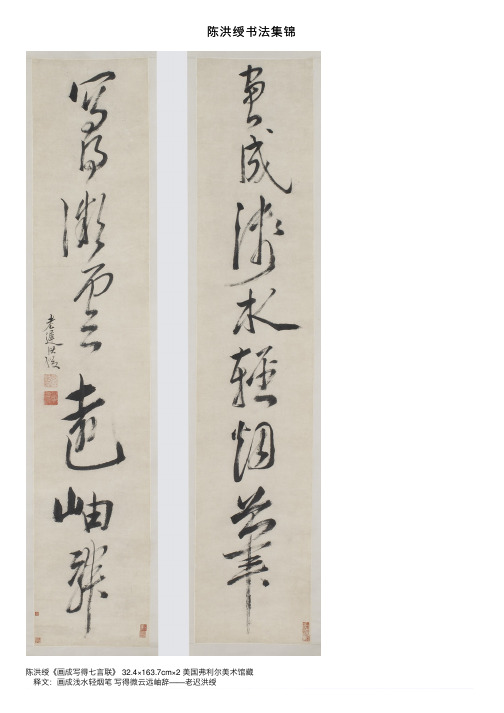 陈洪绶书法集锦
畫成淺水輕烟筆
寫得微雲遠岫辭
老遲洪綬
陈洪绶《画成写得七言联》 32.4×163.7cm×2 美国弗利尔美术馆藏
释文：画成浅水轻烟笔 写得微云远岫辞——老迟洪绶